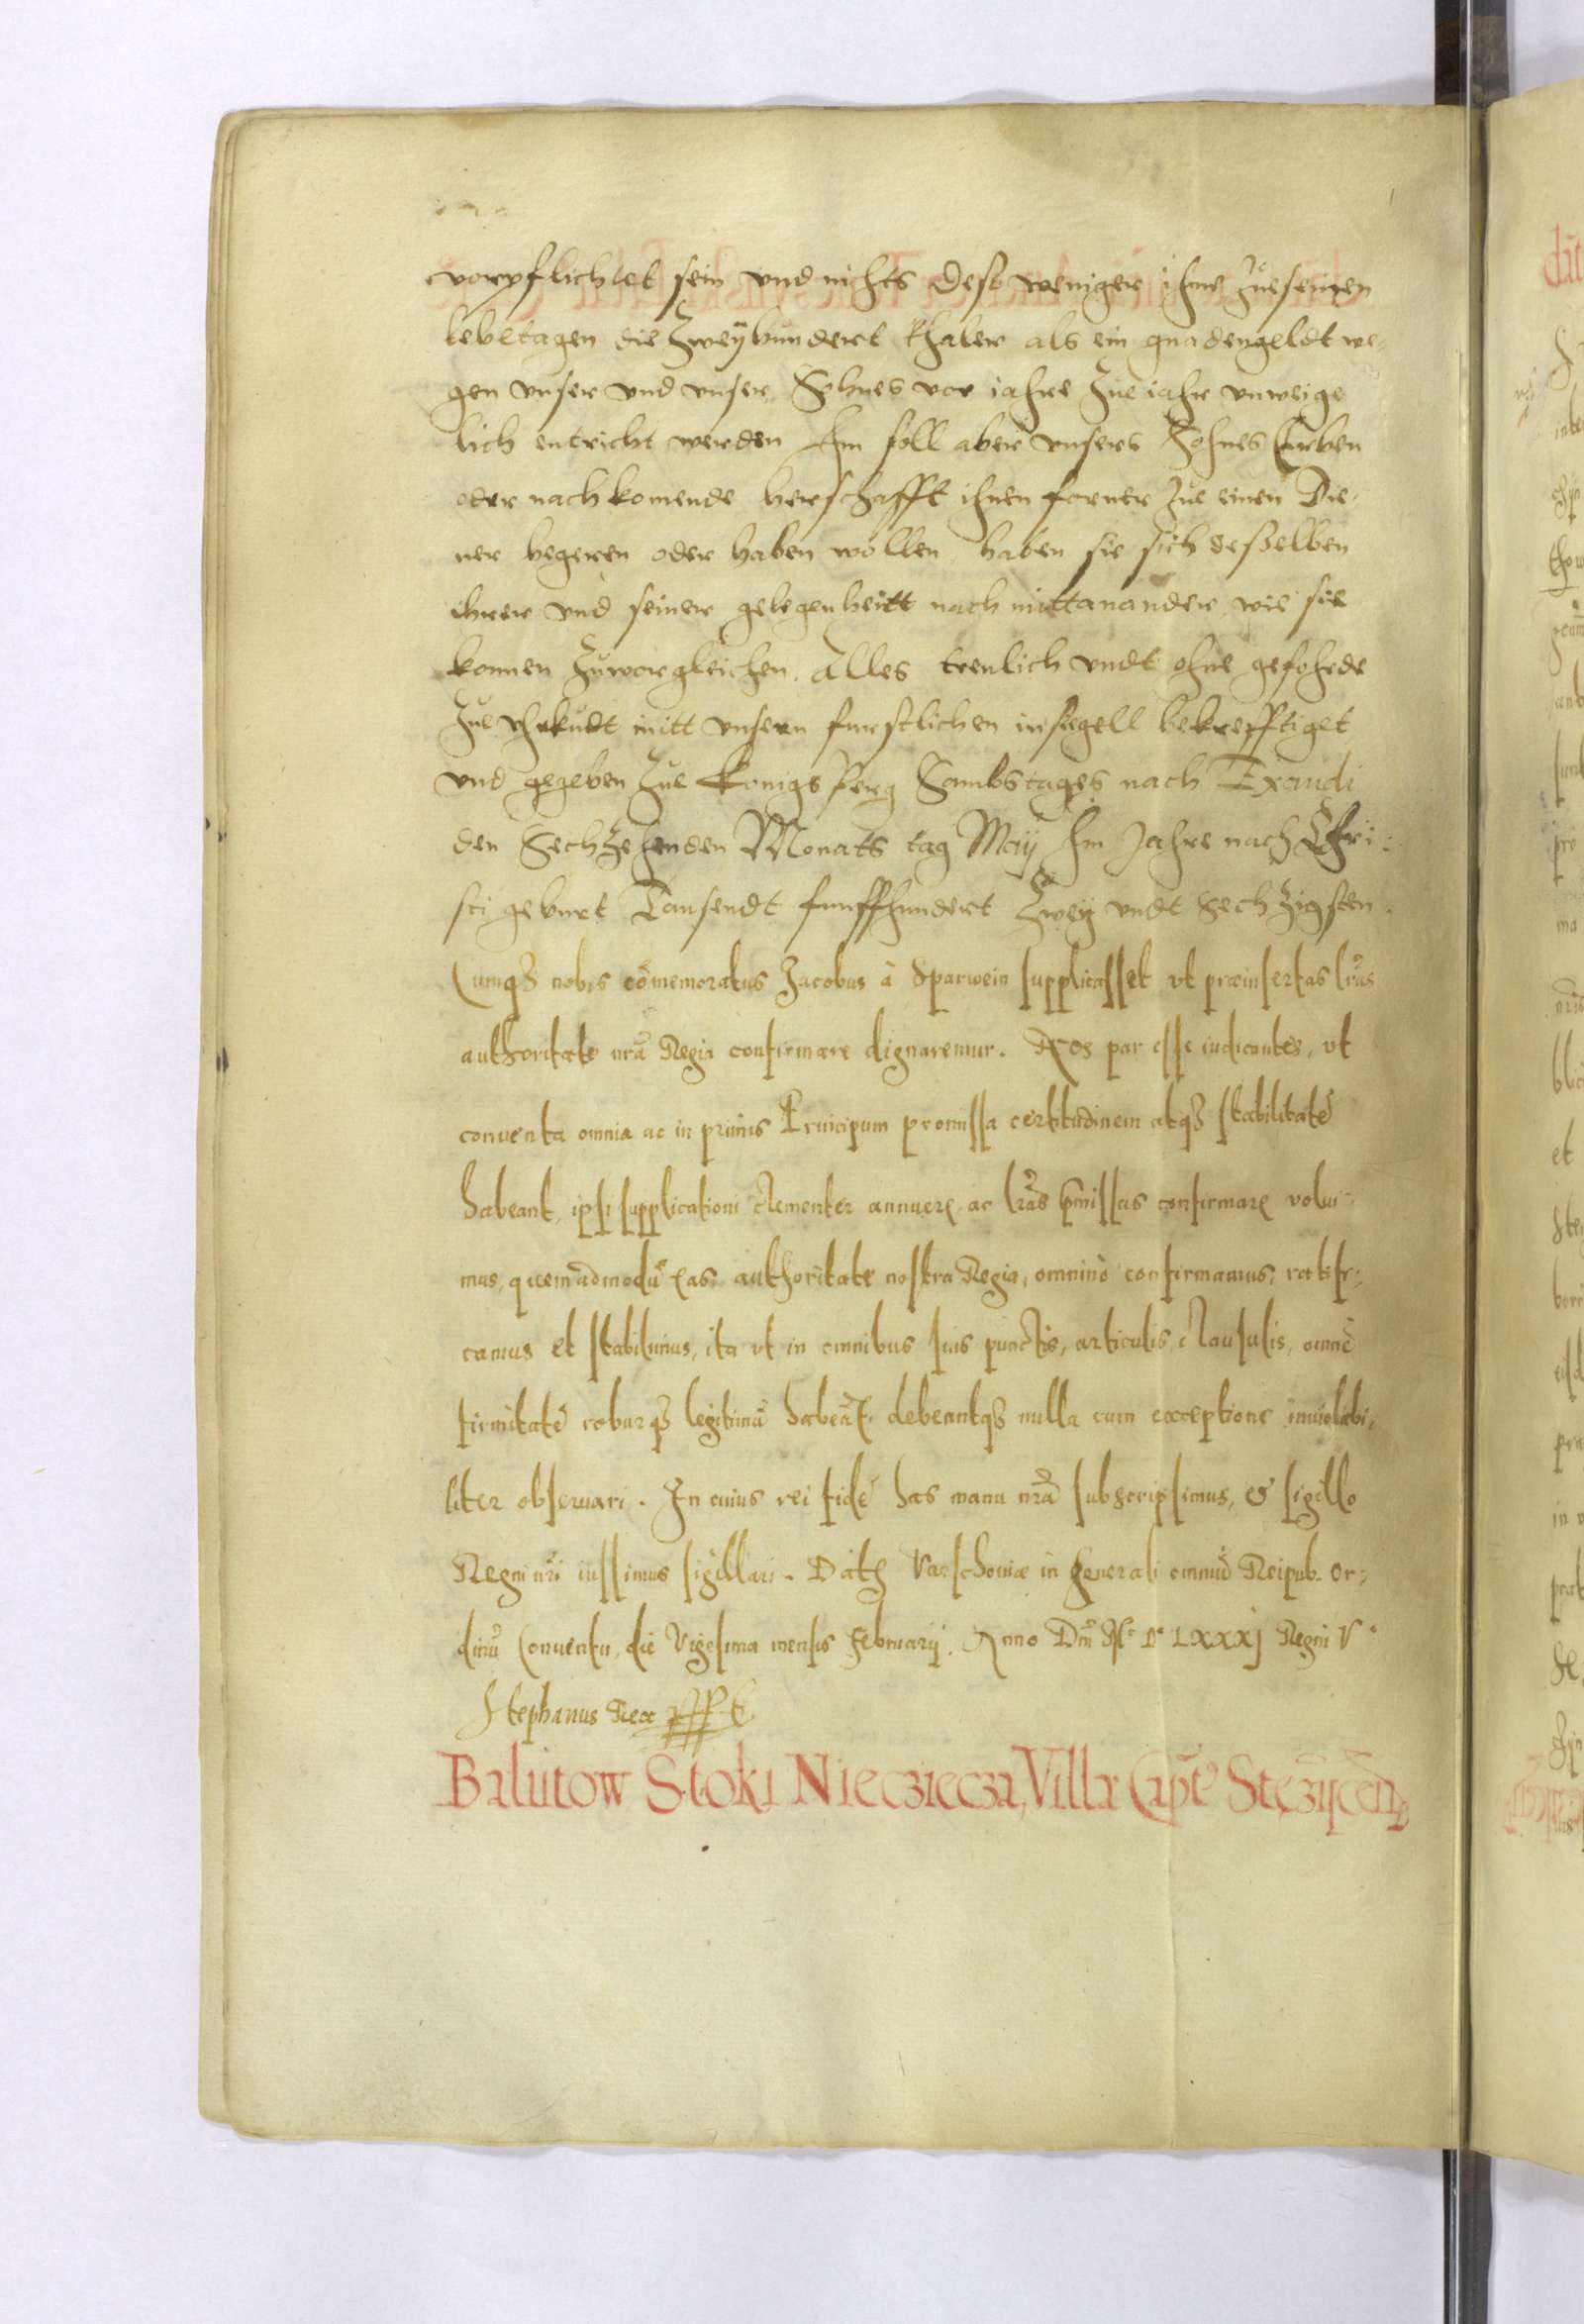 vorpflichtet sein vnd nichts deso weniger ihme zue seinen
lebetagen die Zweyhundert thaler als ein gnadengeldt we-
gen vnser vnd vnser Sohnes vor iahre zue iahr vnweige
lich entricht werden Im fall aber vnsers Sohnes Erben
oder nachkomende herschafft ihnen forner zue einen Die-
ner begeren oder haben wöllen haben sie sich deßelben
ihrer vnd seiner gelegenheitt nach mittanander wie sie
konnen zuvorgleichen. alles treulich vndt ohne gefohrde
Zue vhrkudt mitt vnsern furstlichen insiegell bekrefftiget
vnd gegeben zue Konigsperg Sonnbstages nach Exaudi
den Sechzehenden Monats tag Maij Im Jahre nach Chri:
sti geburt Tausendt funffhundert Zweij vndt Sechzigsten.
Cumqȝ nobis cōmemoratus Jacobus à Sparwein supplicasset vt præinsertas lrās
authoritate nrā Regia confirmare dignaremur. Nos par esse iudicantes, vt
conuenta omnia ac in primis Principum promissa certitudinem atqȝ stabilitatē
habeant, ipsi supplicationi clementer annuere, ac lrās p̄missas confirmare volui-
mus, quemadmodū eas authoritate nostra Regia, omnino confirmamus, ratifi-
camus et stabilimus, ita vt in omnibus suis punctis, articulis clausulis, omnē
firmitatē roburqȝ legitimū habeāt, debeantqȝ nulla cum exceptione inuiolabi-
liter obseruari. In cuius rei fidē has manu nrā subscripsimus, et sigillo
Regni nrī iussimus sigillari. Datȝ Varschouiæ in generali omniū Reipub. or-
dinū Conuentu, die Vigesima mensis Februarij. Anno Dnī Mº Dº LXXXj Regni Vº
Stephanus Rex
Balutow Stoki Niecziecza, Villæ Capte Stęzijcen